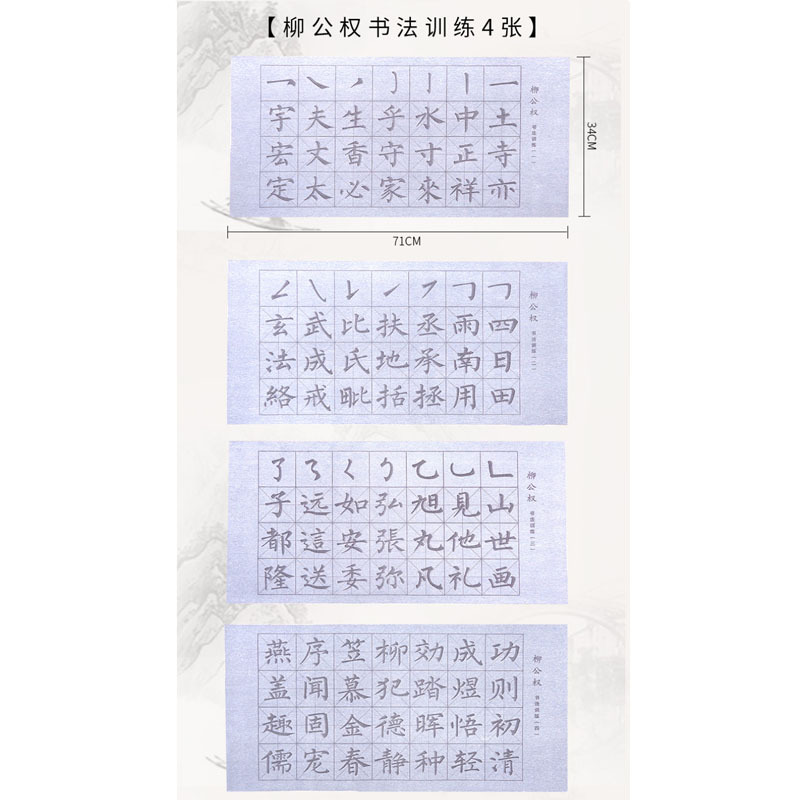 【柳公权书法训练4张】
一㇏丿亅丨丨一
宇夫生乎水中土
宏丈香守寸正寺
定太必家來祥亦
柳公权
书法训练(一)
34CM
71CM
玄武比扶丞雨四
法成氏地承南日
絡戒毗括拯用田
柳公权
书法训练(二)
子远如弘旭見山
都這安張丸他世
隆送委弥凡礼画
柳公权
书法训练(三)
燕序笠柳効成功
盖闻慕犯踏煜则
趣固金德晖悟初
儒宠春静种轻清
柳公权
书法训练(四)